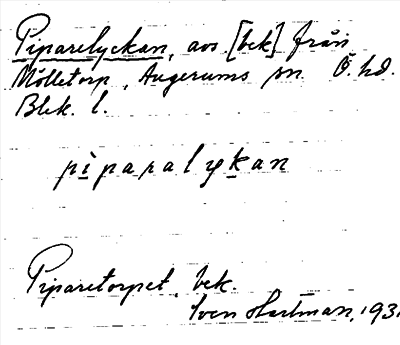 Piparelyckan, avs [bek] från
Mölletorp, Augerums sn Ö. hd.
Blek. l.
pìparalykan
Piparetorpet, bek.
Sven Hartman, 193